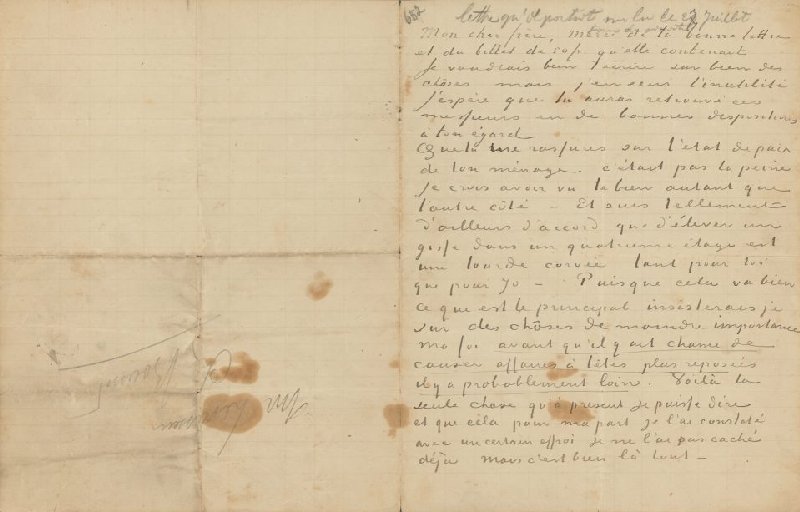 652
lettre qu'il portait sur lui le 27 Juillet
Mon cher frère, merci de ta bonne lettre
et du billet de 50 fr. qu'elle contenait
Je voudrais bien t'écrire sur bien des
choses mais j'en sens l'inutilité
J'espère que tu auras retrouvé ces
messieurs en de bonnes dispositions
à ton égard
Que tu me rassures sur l'état de paix
de ton ménage – c'était pas la peine
Je crois avoir vu le bien autant que
l'autre côté – Et suis tellement
d'ailleurs d'accord que d'élever un
gosse dans un quatrième étage est
une lourde corvée tant pour toi
que pour Jo – Puisque cela va bien
ce que est le principal insisterais je
sur des chôses de moindre importance
ma foi avant qu'il y ait chance de
causer affaires à têtes plus reposées
il y a probablement loin. Voilà la
seule chose qu'à présent je puisse dire
et que céla pour ma part je l'ai constaté
avec un certain effroi je ne l'ai pas caché
déjà mais c'est bien là tout –